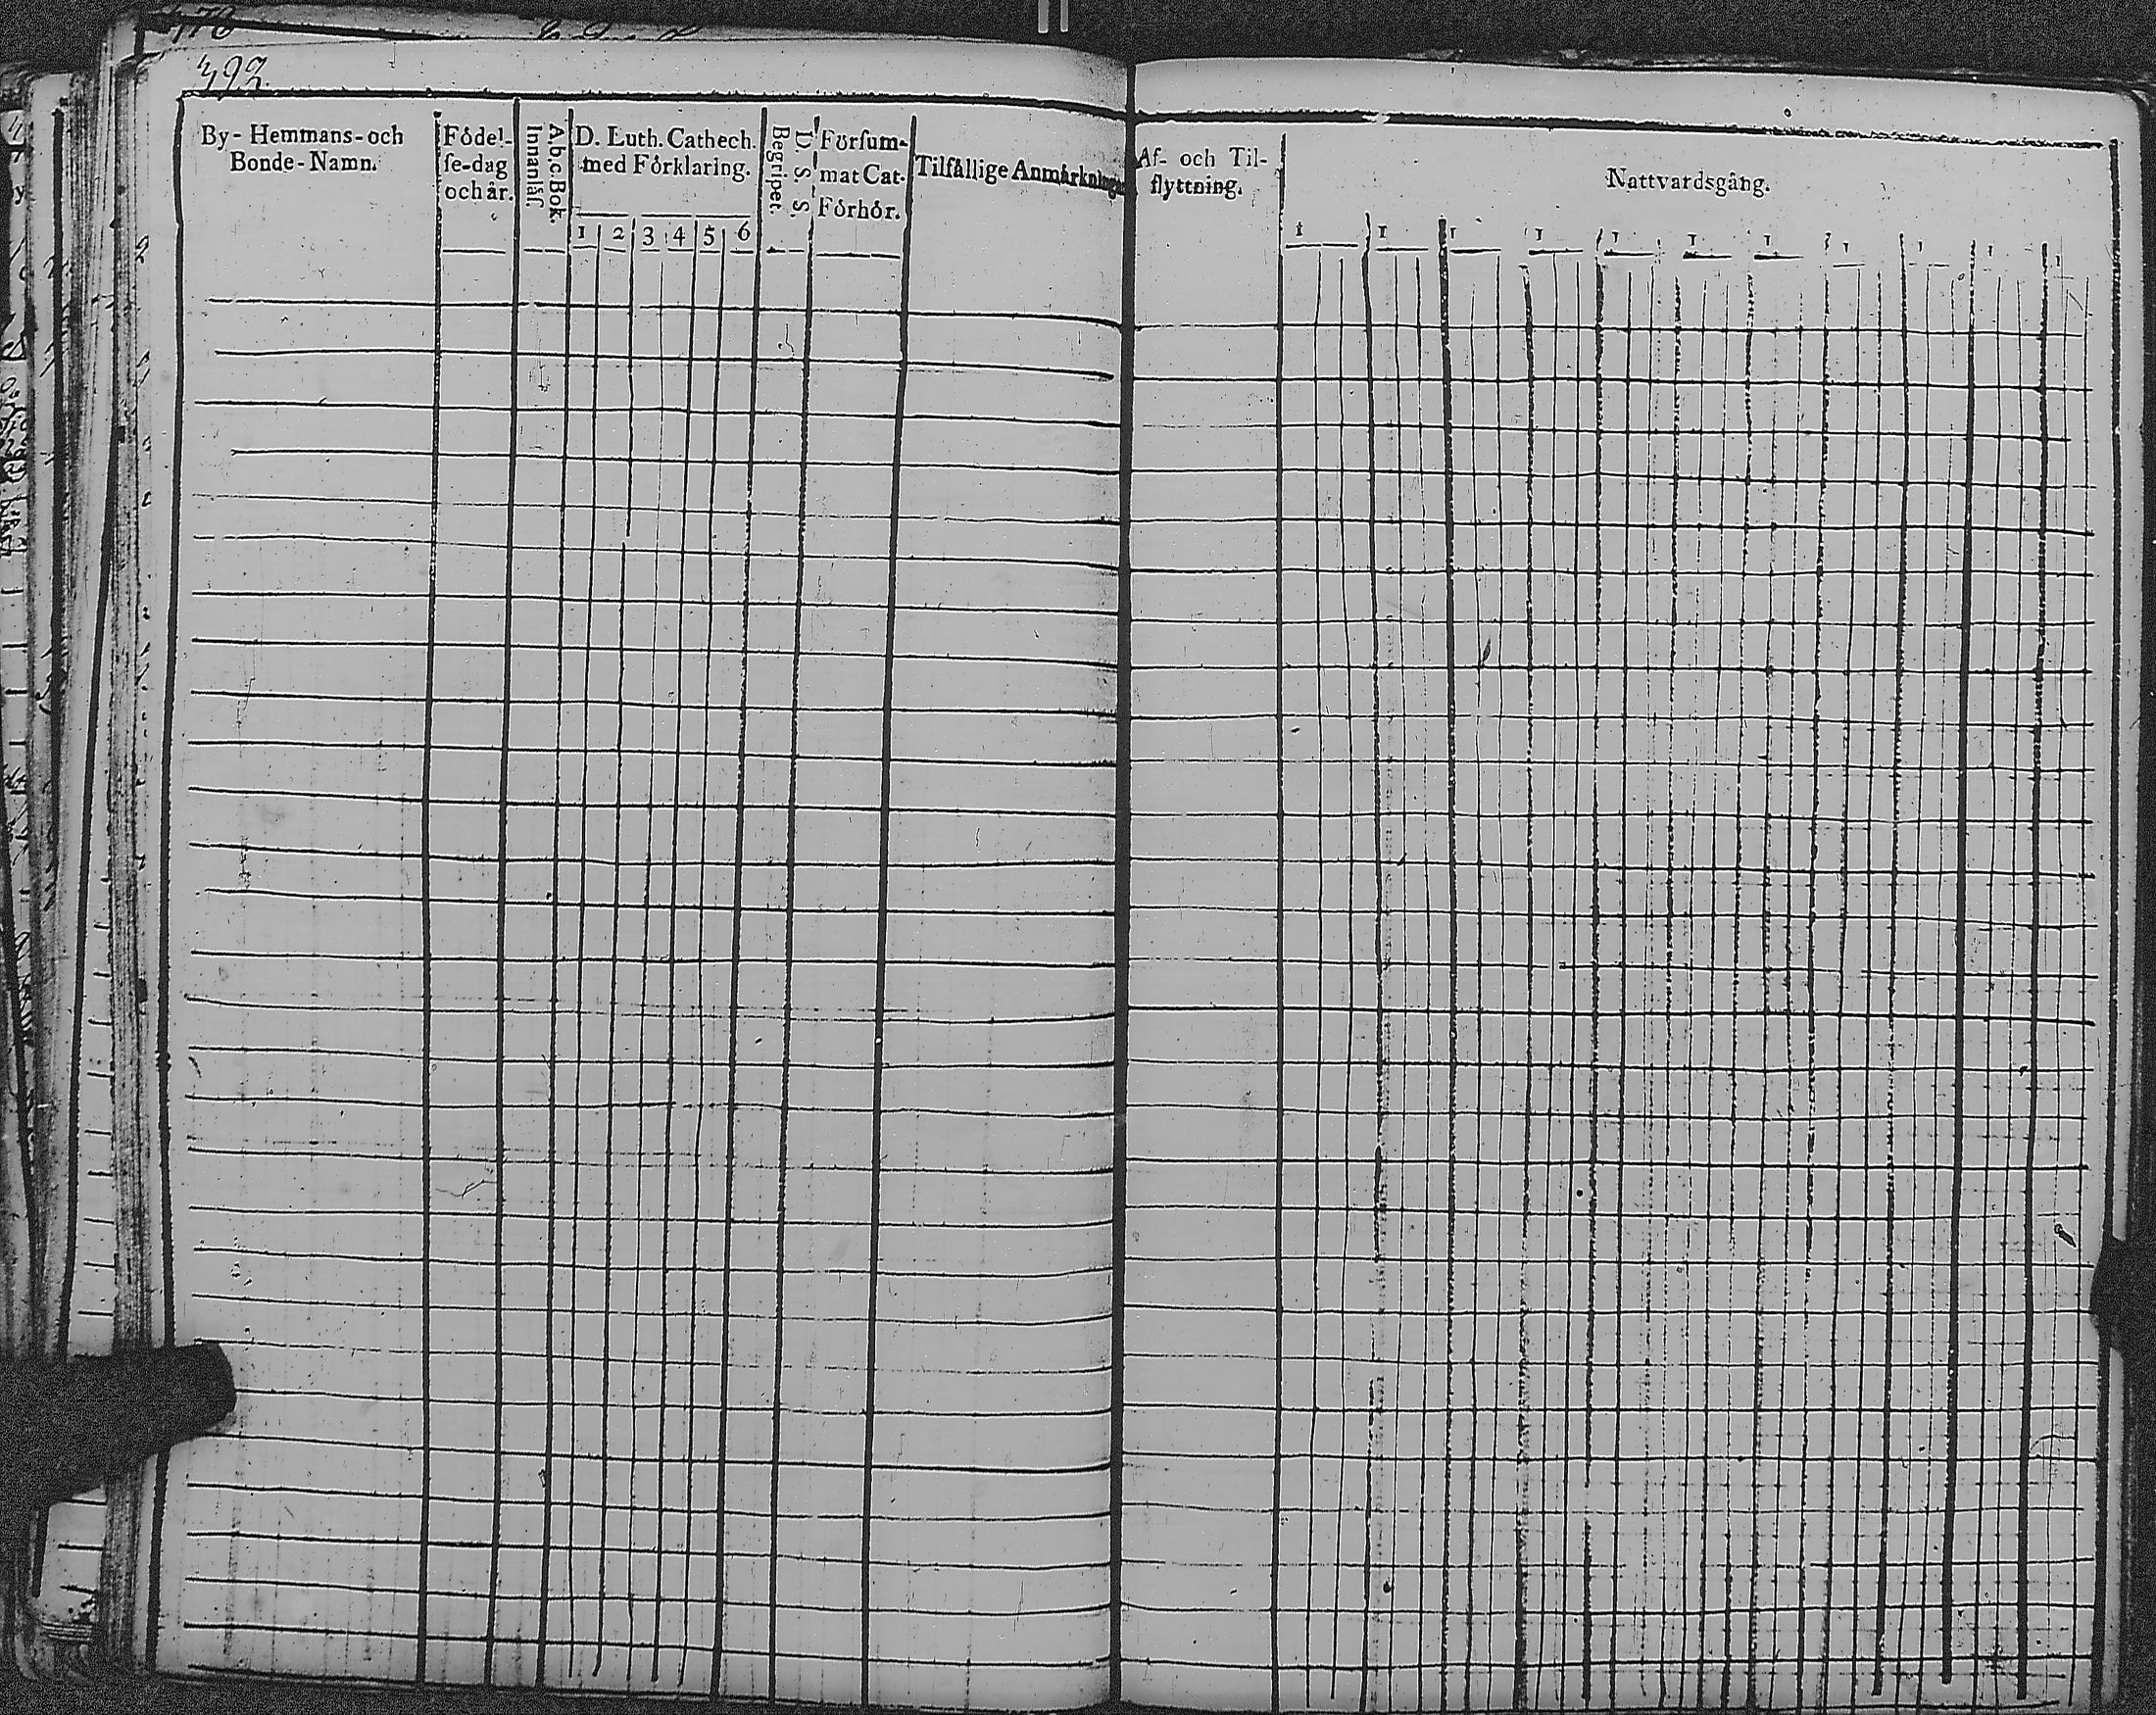 492.
By- Hemmans- och
Bonde- Namn.
Födel-
se-dag
och år.
A.b.c Bok.
Innanläſ.
D. Luth. Cathech.
med Förklaring.
1 2 3 4 5 6
D. S. S.
Begripet.
Förſum-
mat Cat.
Förhör.
Tilfällige Anmärkningar
Af- och Til-
flyttning.
Nattvardsgång.
1 1 1 1 1 1 1 1 1 1 1